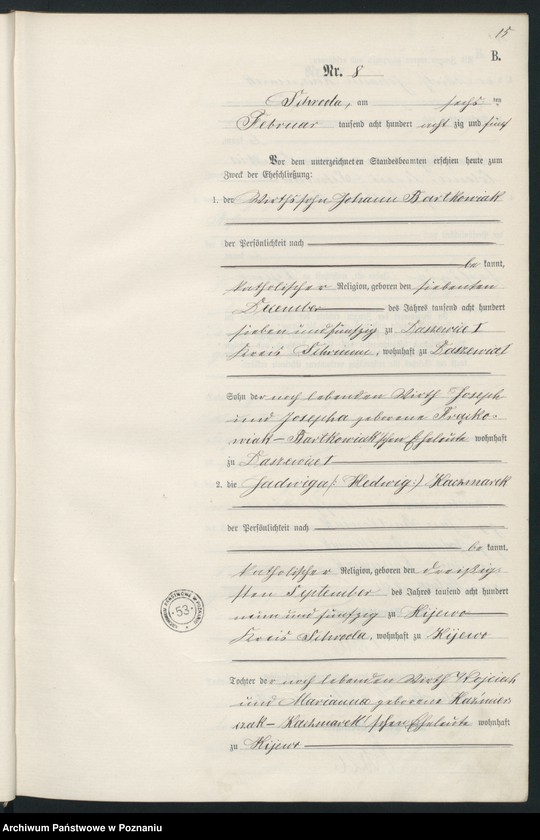 15
B.
Nr. 8
Schroda, am sechs ten
Februar tausend acht hundert acht zig und fünf
Vor dem unterzeichneten Standesbeamten erschien heute zum
Zweck der Eheschließung:
1. der Wirthssohn Johann Bartkowiak
der Persönlichkeit nach
be kannt,
katholischer Religion, geboren den siebenten
Dezember des Jahres tausend acht hundert
sieben und fünfzig zu Daszewice
Kreis Schrimm, wohnhaft zu Daszewice
Sohn der noch lebenden Wirth Joseph
und Josepha geborene
wiak - Bartkowiak'schen Eheleute wohnhaft
zu Daszewice
2. die Jadwiga (: Hedwig :) Kaczmarek
der Persönlichkeit nach
be kannt,
katholischer Religion, geboren den dreißig
sten September des Jahres tausend acht hundert
neun und fünfzig zu Kijewo
Kreis Schroda, wohnhaft zu Kijewo
Tochter der noch lebenden Wirth Wojciech
und Marianna geborene Kaźmier
czak - Kaczmarek'schen Eheleute wohnhaft
zu Kijewo
ARCHIWUM PAŃSTWOWE W POZNANIU
53
Archiwum Państwowe w Poznaniu